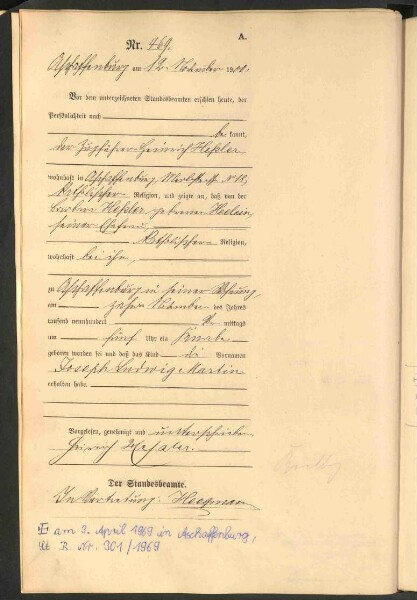 A.
Nr. 469.
Aschaffenburg am 12. 1900.
Vor dem unterzeichneten Standesbeamten erschien heute, der
Persönlichkeit nach
be kannt,
der Zugführer Heinrich Heßler
wohnhaft in Aschaffenburg, No 18,
katholischer Religion, und zeigte an, daß von der
Heßler geborenen
seiner Ehefrau,
katholischer Religion,
wohnhaft bei ihm,
zu Aschaffenburg in seiner Wohnung,
am zehn des Jahres
tausend neunhundert mittags
um fünf Uhr ein Knabe
geboren worden sei und daß das Kind die Vornamen
Joseph Ludwig Martin
erhalten habe.
Vorgelesen, genehmigt und unterschrieben
Heinrich Hessler.
Der Standesbeamte.
In Vertretung:
am 9. April 1969 in Aschaffenburg,
R. Nr. 301/1969